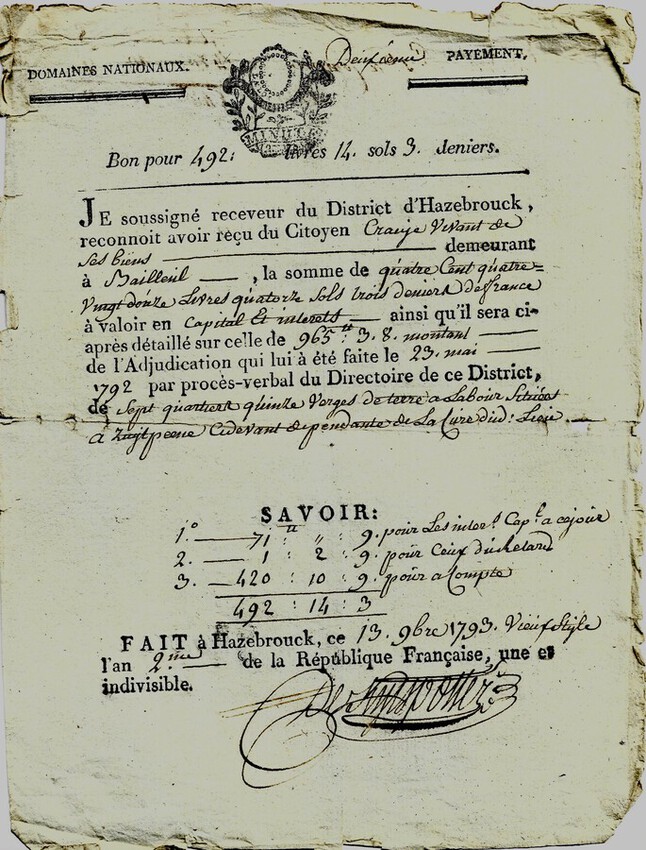 DOMAINES NATIONAUX.
Deuxieme PAYEMENT.
MINUTE
Bon pour 492: livres 14. sols 3. deniers.
JE soussigné receveur du District d'Hazebrouck,
reconnoit avoir reçu du Citoyen Vivant de
Ses biens demeurant
à Bailleul, la somme de quatre Cent quatre=
Vingt douze Livres quatorze Sols trois deniers de france
à valoir en Capital Et interets ainsi qu'il sera ci-
après détaillé sur celle de 965tt: 3. 8. montant
de l'Adjudication qui lui à été faite le 23. mai
1792 par procès-verbal du Directoire de ce District,
de Sept quartiers quinze Verges de terre a Labour Situées
a Zuijtpeene Cidevant dependante de La Cure dud: Lieu
SAVOIR:
1.° 71 tt " : 9. pour Les inter.s Cap.l a cejour
2. 1 : 2 : 9. pour Ceux du Retard
3. 420 : 10 : 9. pour a Compte
492 : 14 : 3
FAIT à Hazebrouck, ce 13. 9bre 1793. Vieux Style
l'an 2.me de la République Française, une et
indivisible.